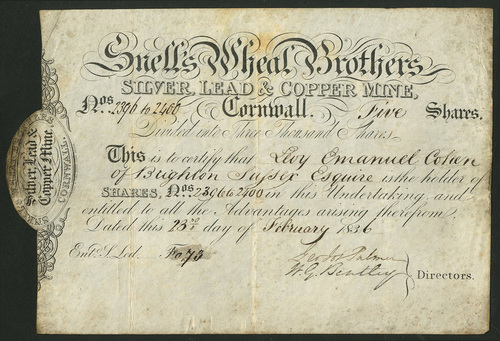 Snell's Wheal Brothers
SILVER, LEAD & COPPER MINE,
Nos. 2396 to 2400 Cornwall. Five Shares.
Divided into Three Thousand Shares
This is to certify that Levy Emanuel Cohen
of Brighton Sussex Esquire is the holder of
SHARES, Nos. 2396 to 2400 in this Undertaking and
entitled to all the Advantages arising therefrom.
Dated this 23rd day of February 1836
Entd. S. Led. Fo 73
Palmer
W. G. Bentley Directors.
Silver, Lead &
Copper Mine.
CORNWALL